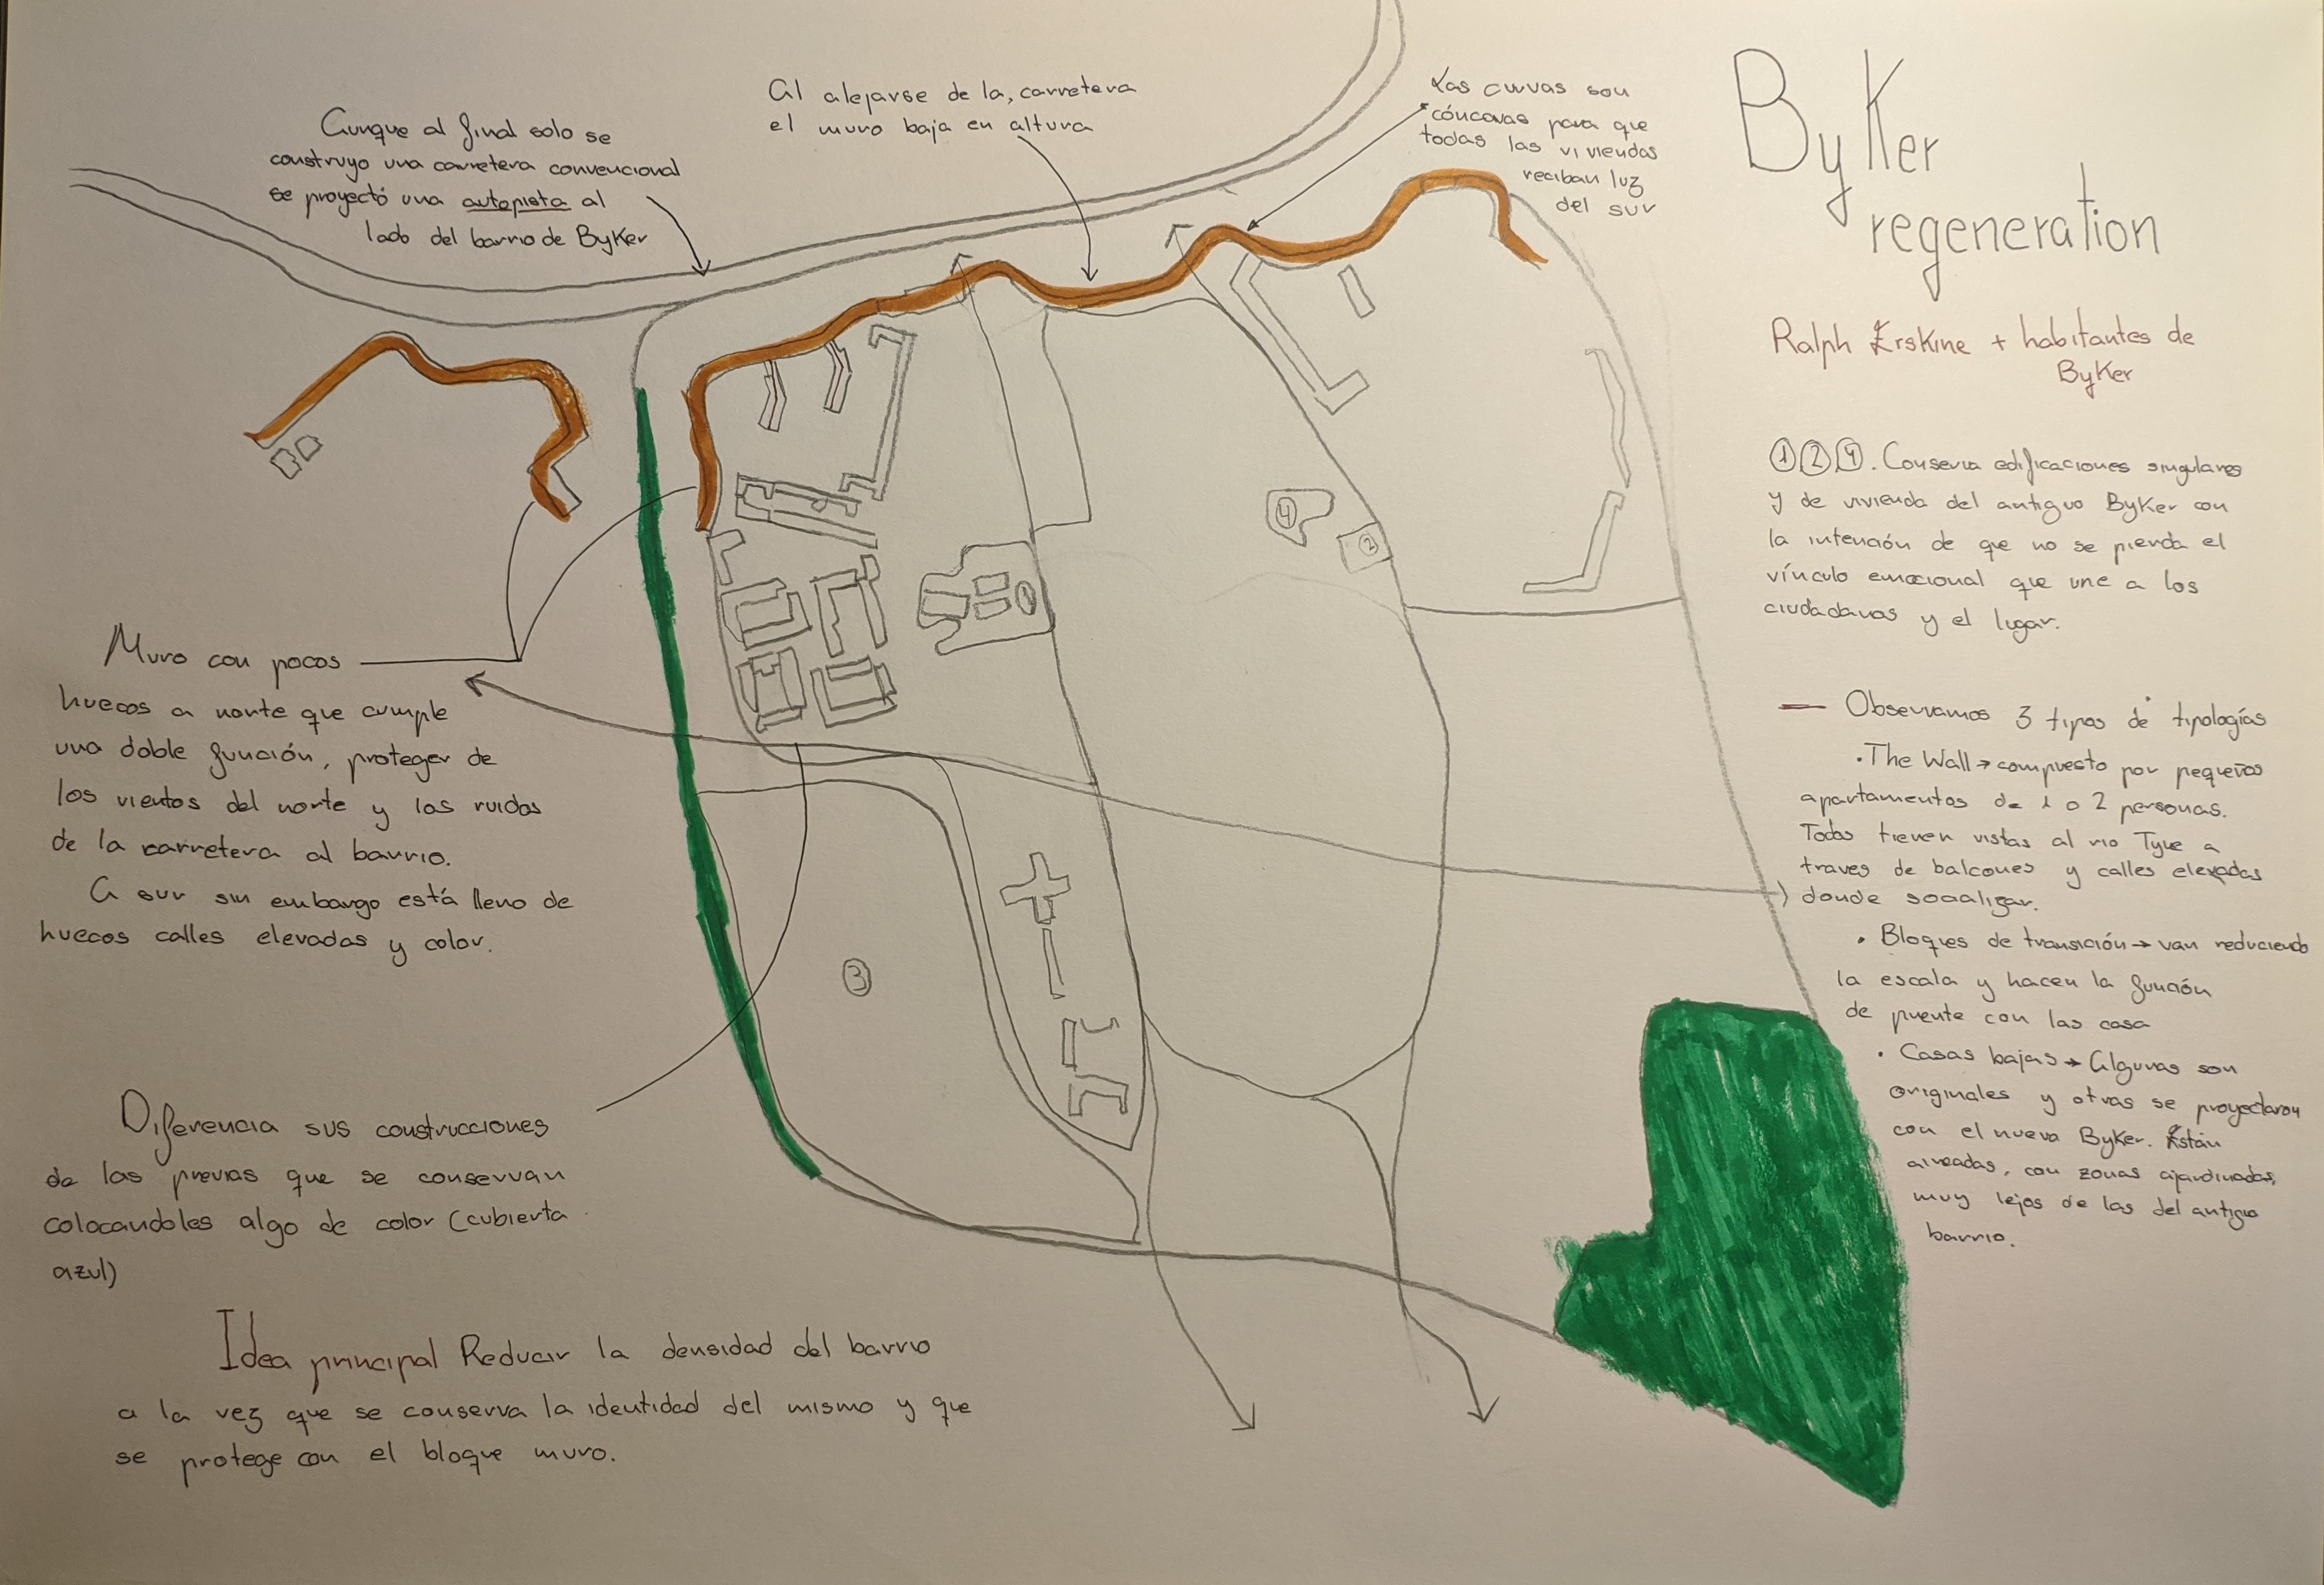 Byker
regeneration
Ralph Erskine + habitantes de
Byker
Aunque al final solo se
construyo una carretera convencional
se proyectó una autopista al
lado del barrio de Byker
Al alejarse de la, carretera
el muro baja en altura
Las curvas son
cóncavas para que
todas las viviendas
reciban luz
del sur
① ② ④. Conserva edificaciones singulares
y de vivienda del antiguo Byker con
la intención de que no se pierda el
vínculo emocional que une a los
ciudadanos y el lugar.
— Observamos 3 tipos de tipologías
· The Wall → compuesto por pequeños
apartamentos de 1 o 2 personas.
Todos tienen vistas al rio Tyne a
traves de balcones y calles elevadas
donde socializar.
· Bloques de transición → van reduciendo
la escala y hacen la función
de puente con las casa
· Casas bajas → Algunas son
originales y otras se proyectaron
con el nueva Byker. Están
aireadas, con zonas ajardinadas,
muy lejos de las del antiguo
barrio.
4
2
1
3
Muro con pocos
huecos a norte que cumple
una doble función, proteger de
los vientos del norte y los ruidos
de la carretera al barrio.
A sur sin embargo está lleno de
huecos calles elevadas y color.
Diferencia sus construcciones
de las previas que se conservan
colocandoles algo de color (cubierta
azul)
Idea principal Reducir la densidad del barrio
a la vez que se conserva la identidad del mismo y que
se protege con el bloque muro.